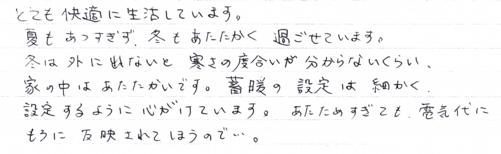 とても快適に生活しています。
夏もあつすぎず、冬もあたたかく過ごせています。
冬は外に出ないと寒さの度合いが分からないくらい、
家の中はあたたかいです。蓄暖の設定は細かく
設定するように心がけています。あたためすぎても、電気代に
もろに反映されてしまうので…。